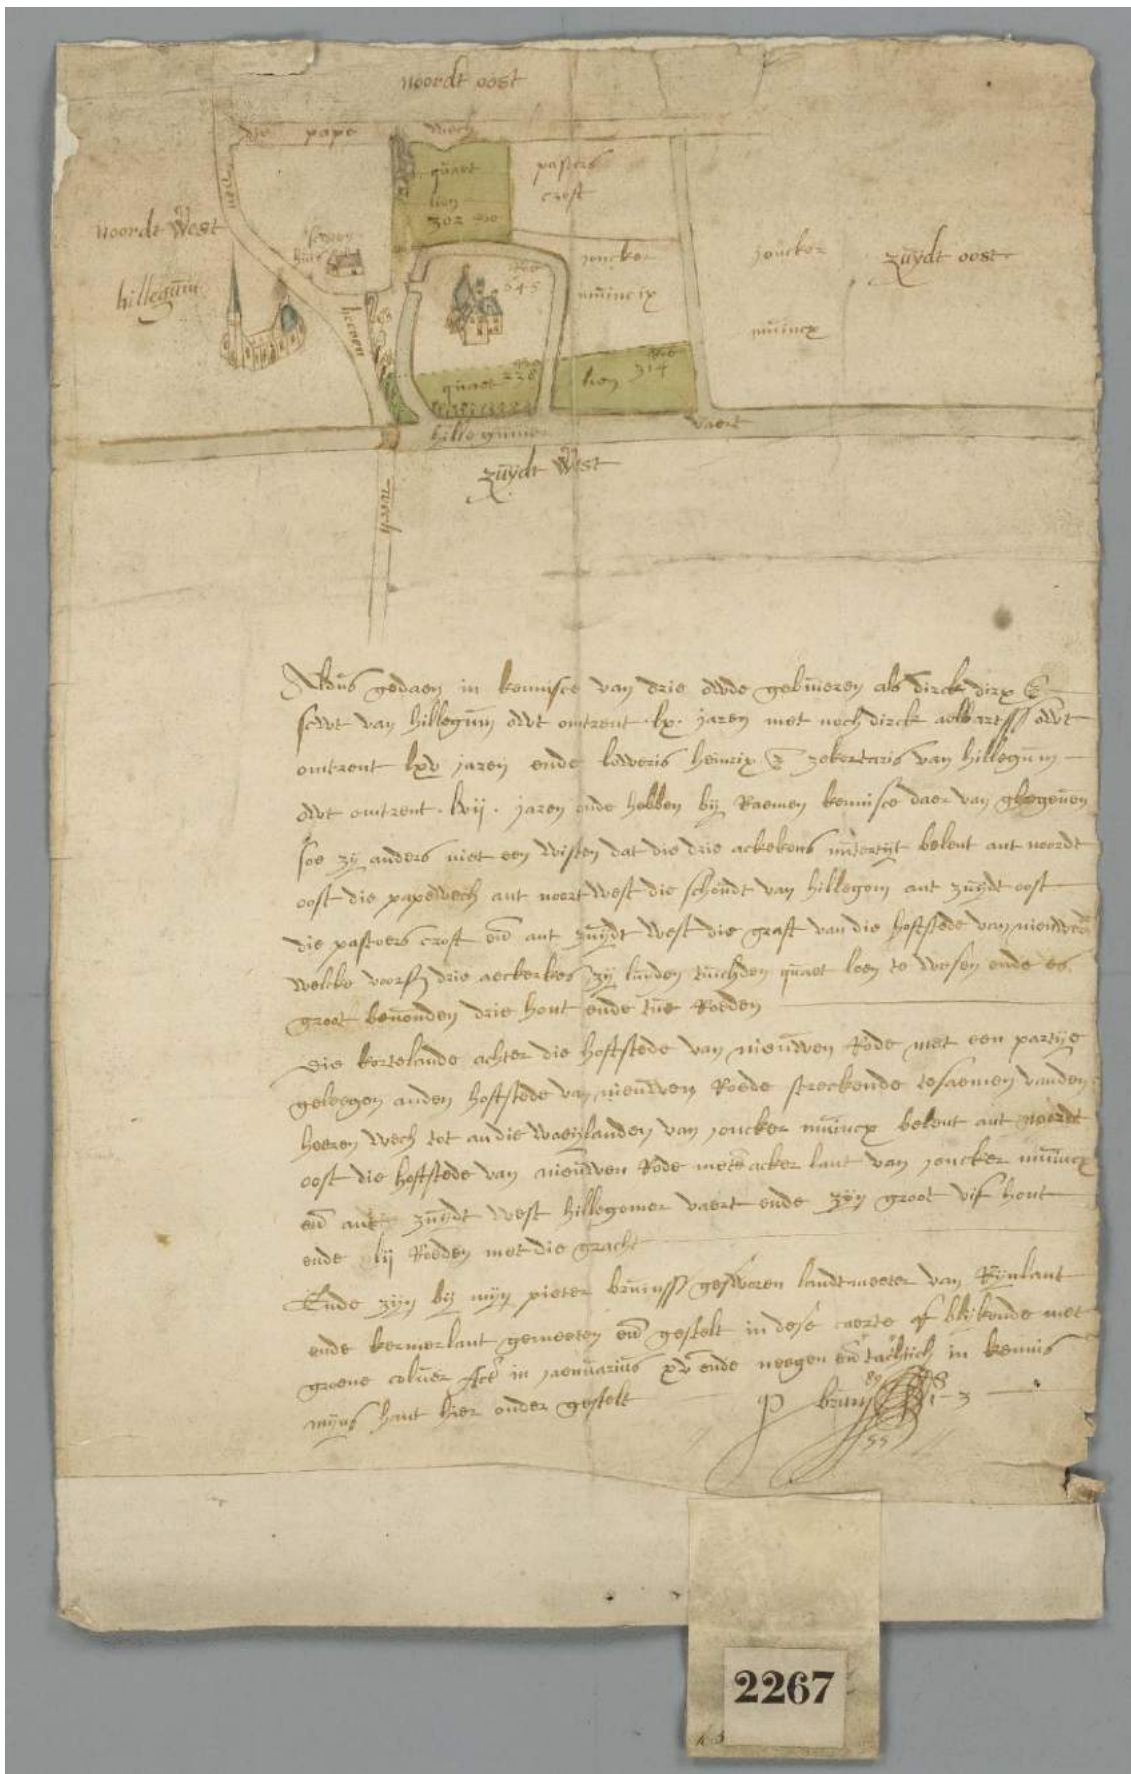 noordt oost
die pape wech
quaet
lien
302 roo
pastors
croft
noordt West
hillegum
heeren
joncker
muincx
roo
645
joncker
muincx
zuydt oost
quaet 228
lien 314
hillegummer vaert
zuydt West
wech
Aldus gedaen in kennisse van drie owde gebueren als dirck dirx
scout van hillegum owt omtrent lx jaren met noch dirck aelbartss owt
omtrent lxv jaren ende louweris heinrix zekertaris van hillegum
owt omtrent lvij jaren ende hebben bij Raemen kennisse daer van ghegeven
soe zij anders niet een wisten dat die drie ackekens belent ant noordt
oost die papewech ant noort west die van hillegom ant zuydt oost
die pastoers croft ende ant zuydt west die graft van die hofstede van nieuwen
welcke voors drie aeckerkes zij luyden tuichden quaet leen te wesen ende es
groot bevonden drie hont ende tue Roeden
Die kortelande achter die hofstede van nieuwen Rode met een partije
geleegen anden hofstede van nieuwen Roede streckende tesaemen vanden
heeren wech tot an die landen van joncker muincx belent ant noordt
oost die hofstede van nieuwen Rode mette acker lant van joncker muincx
ende ant zuydt west hillegomer vaert ende zijn groot vif hont
ende lij Roeden met die gracht
Ende zijn bij mijn pieter bruinss gesworen landtmeeter van Rijnlant
ende kermerlant gemeeten ende gestelt in dese caerte blijkende met
groene coluer Actum in jaenuarius xvc ende neegen ende tachtich in kennis
mijns hant hier onder gestelt
P bruinss
2267